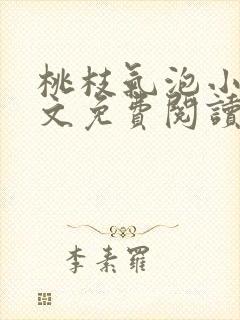 桃枝氣泡小
文免費閱讀
李素羅